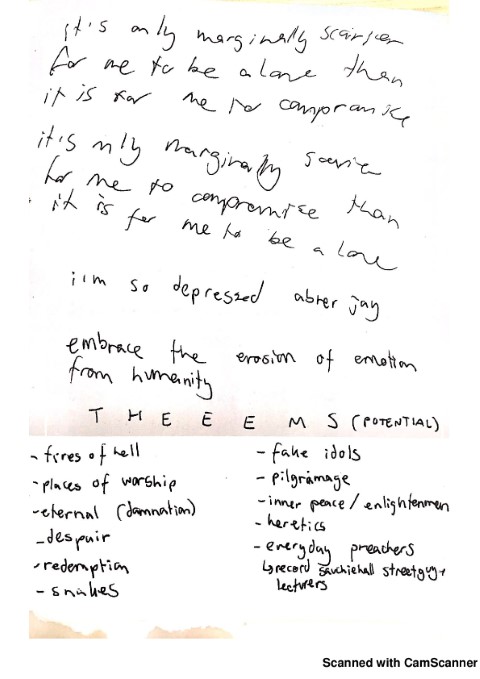 it's only marginally scarier
for me to be alone than
it is for me to compromise
it's only marginally scarier
for me to compromise than
it is for me to be alone
i'm so depressed abter jay
embrace the erosion of emotion
from humanity
T H E E E M S (POTENTIAL)
- fires of hell
- places of worship
- eternal (damnation)
- despair
- redemption
- snakes
- fake idols
- pilgramage
- inner peace / enlightenmen
- heretics
- everyday preachers
↳ record sauchiehall street guy +
lecturers
Scanned with CamScanner